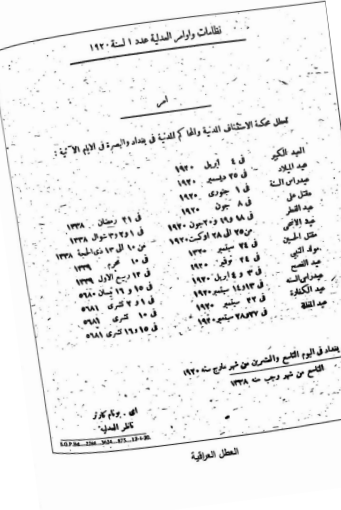 نظامات واوامر العدلية عدد ١ لسنة ١٩٢٠
امر
تعطل محكمة الاستئناف المدنية والمحاكم المدنية في بغداد والبصرة في الايام الآتية :
العيد الكبير في ٤ ابريل ١٩٢٠
عيد الميلاد في ٢٥ ديسمبر ١٩٢٠
عيد راس السنة في ١ جنوري ١٩٢٠
مقتل علي في ٨ جون ١٩٢٠ في ٢١ رمضان ١٣٣٨
عيد الفطر في ١٨ و١٩ و٢٠ جون ١٩٢٠ في ١ و٢ و٣ شوال ١٣٣٨
عيد الاضحى من ٢٥ الى ٢٨ اوكست ١٩٢٠ من ١٠ الى ١٣ ذي الحجة ١٣٣٨
مقتل الحسين في ٢٤ سبتمبر ١٩٢٠ في ١٠ محرم ١٣٣٩
مولد النبي في ٢٤ نوفبر ١٩٢٠ في ١٢ ربيع الاول ١٣٣٩
عيد الفصح في ٣ و ٤ ابريل ١٩٢٠ في ١٥ و ١٦ نيسان ٥٦٨٠
عيد راس السنة في ١٣ و١٤ سبتمبر ١٩٢٠ في ١ و ٢ تشري ٥٦٨١
عيد الكفارة في ٢٢ سبتمبر ١٩٢٠ في ١٠ تشري ٥٦٨١
عيد المظلة في ٢٧ و٢٨ سبتمبر ١٩٢٠ في ١٥ و١٦ تشري ٥٦٨١
بغداد في اليوم التاسع والعشرين من شهر مارچ سنه ١٩٢٠
التاسع من شهر رجب سنه ١٣٣٨
اي . بونهام كارتر
ناظر العدلية
العطل العراقية